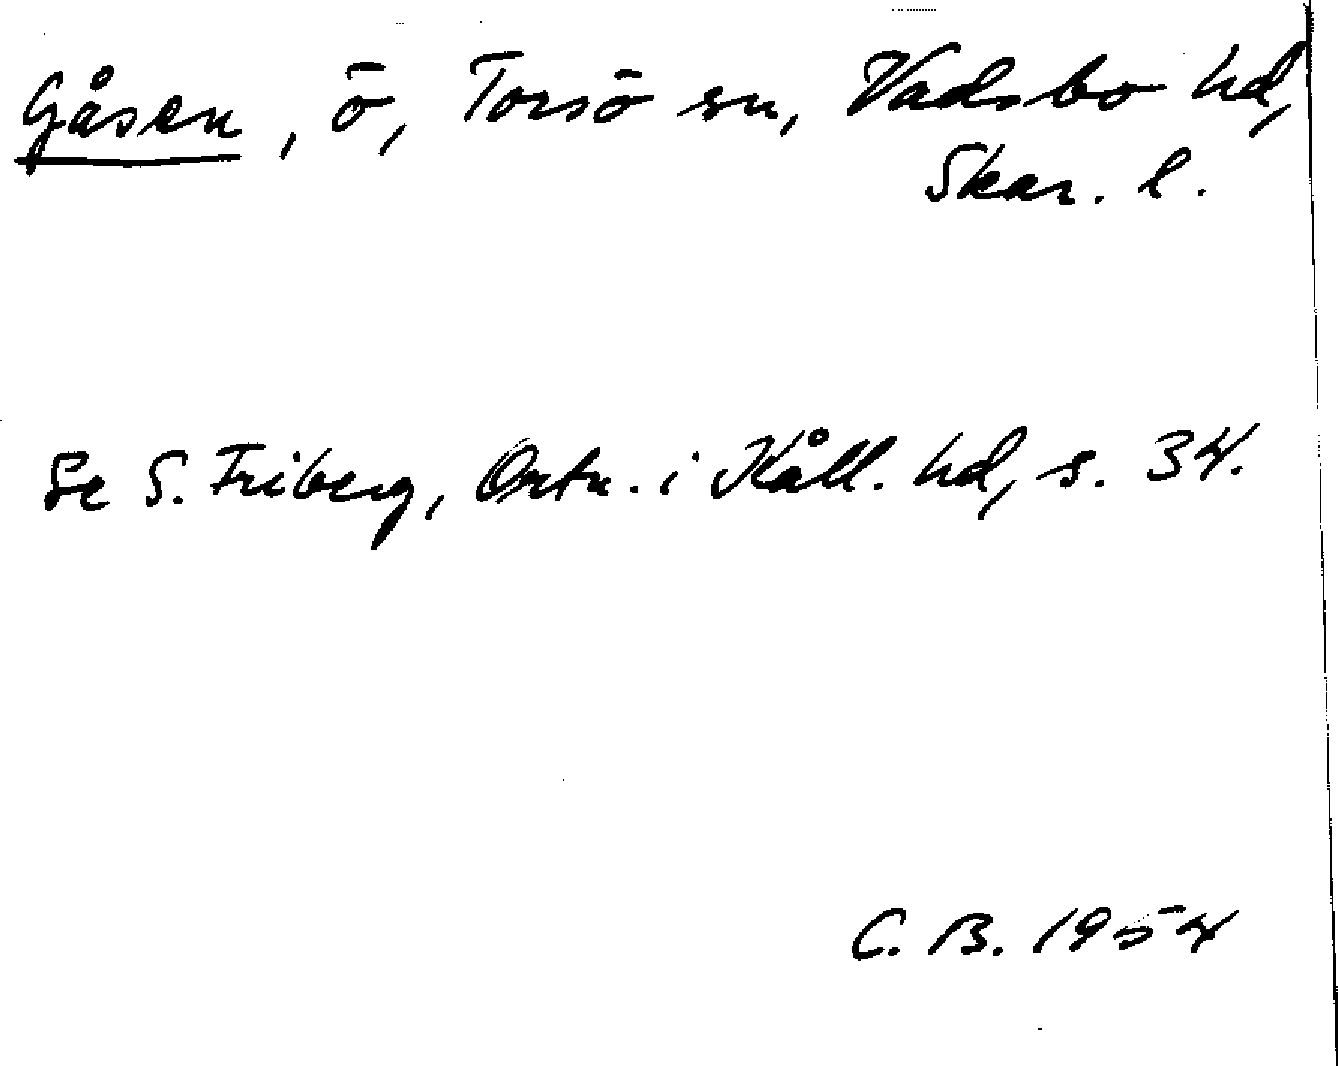 Gåsen, ö, Torsö sn, Vadsbo hd,
Skar. l.
Se S. Friberg, Ortn. i Kåll. hd, s. 34.
C. B. 1954